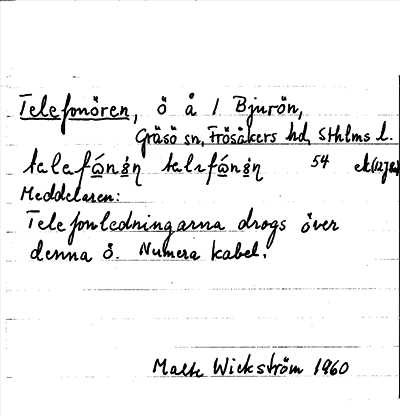 Telefonören, ö å / Bjurön,
Gräsö sn, Frösåkers hd, Sthlms l.
54 ek(12782)
Meddelaren:
Telefonledningarna drogs över
denna ö. Numera kabel.
Malte Wickström 1960